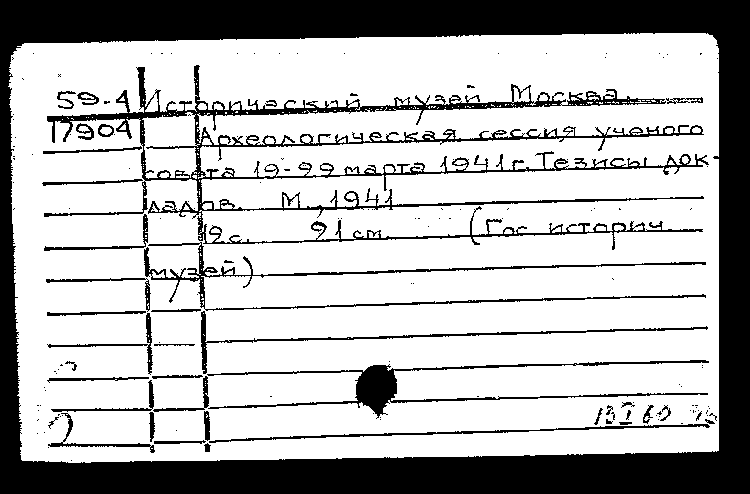 59-4 Исторический музей Москва.
17904 Археологическая сессия ученого
совета 19-22 марта 1941 г. Тезисы док-
ладов. М., 1941
12 с. 21 см. (Гос историч.
музей).
13 I 60